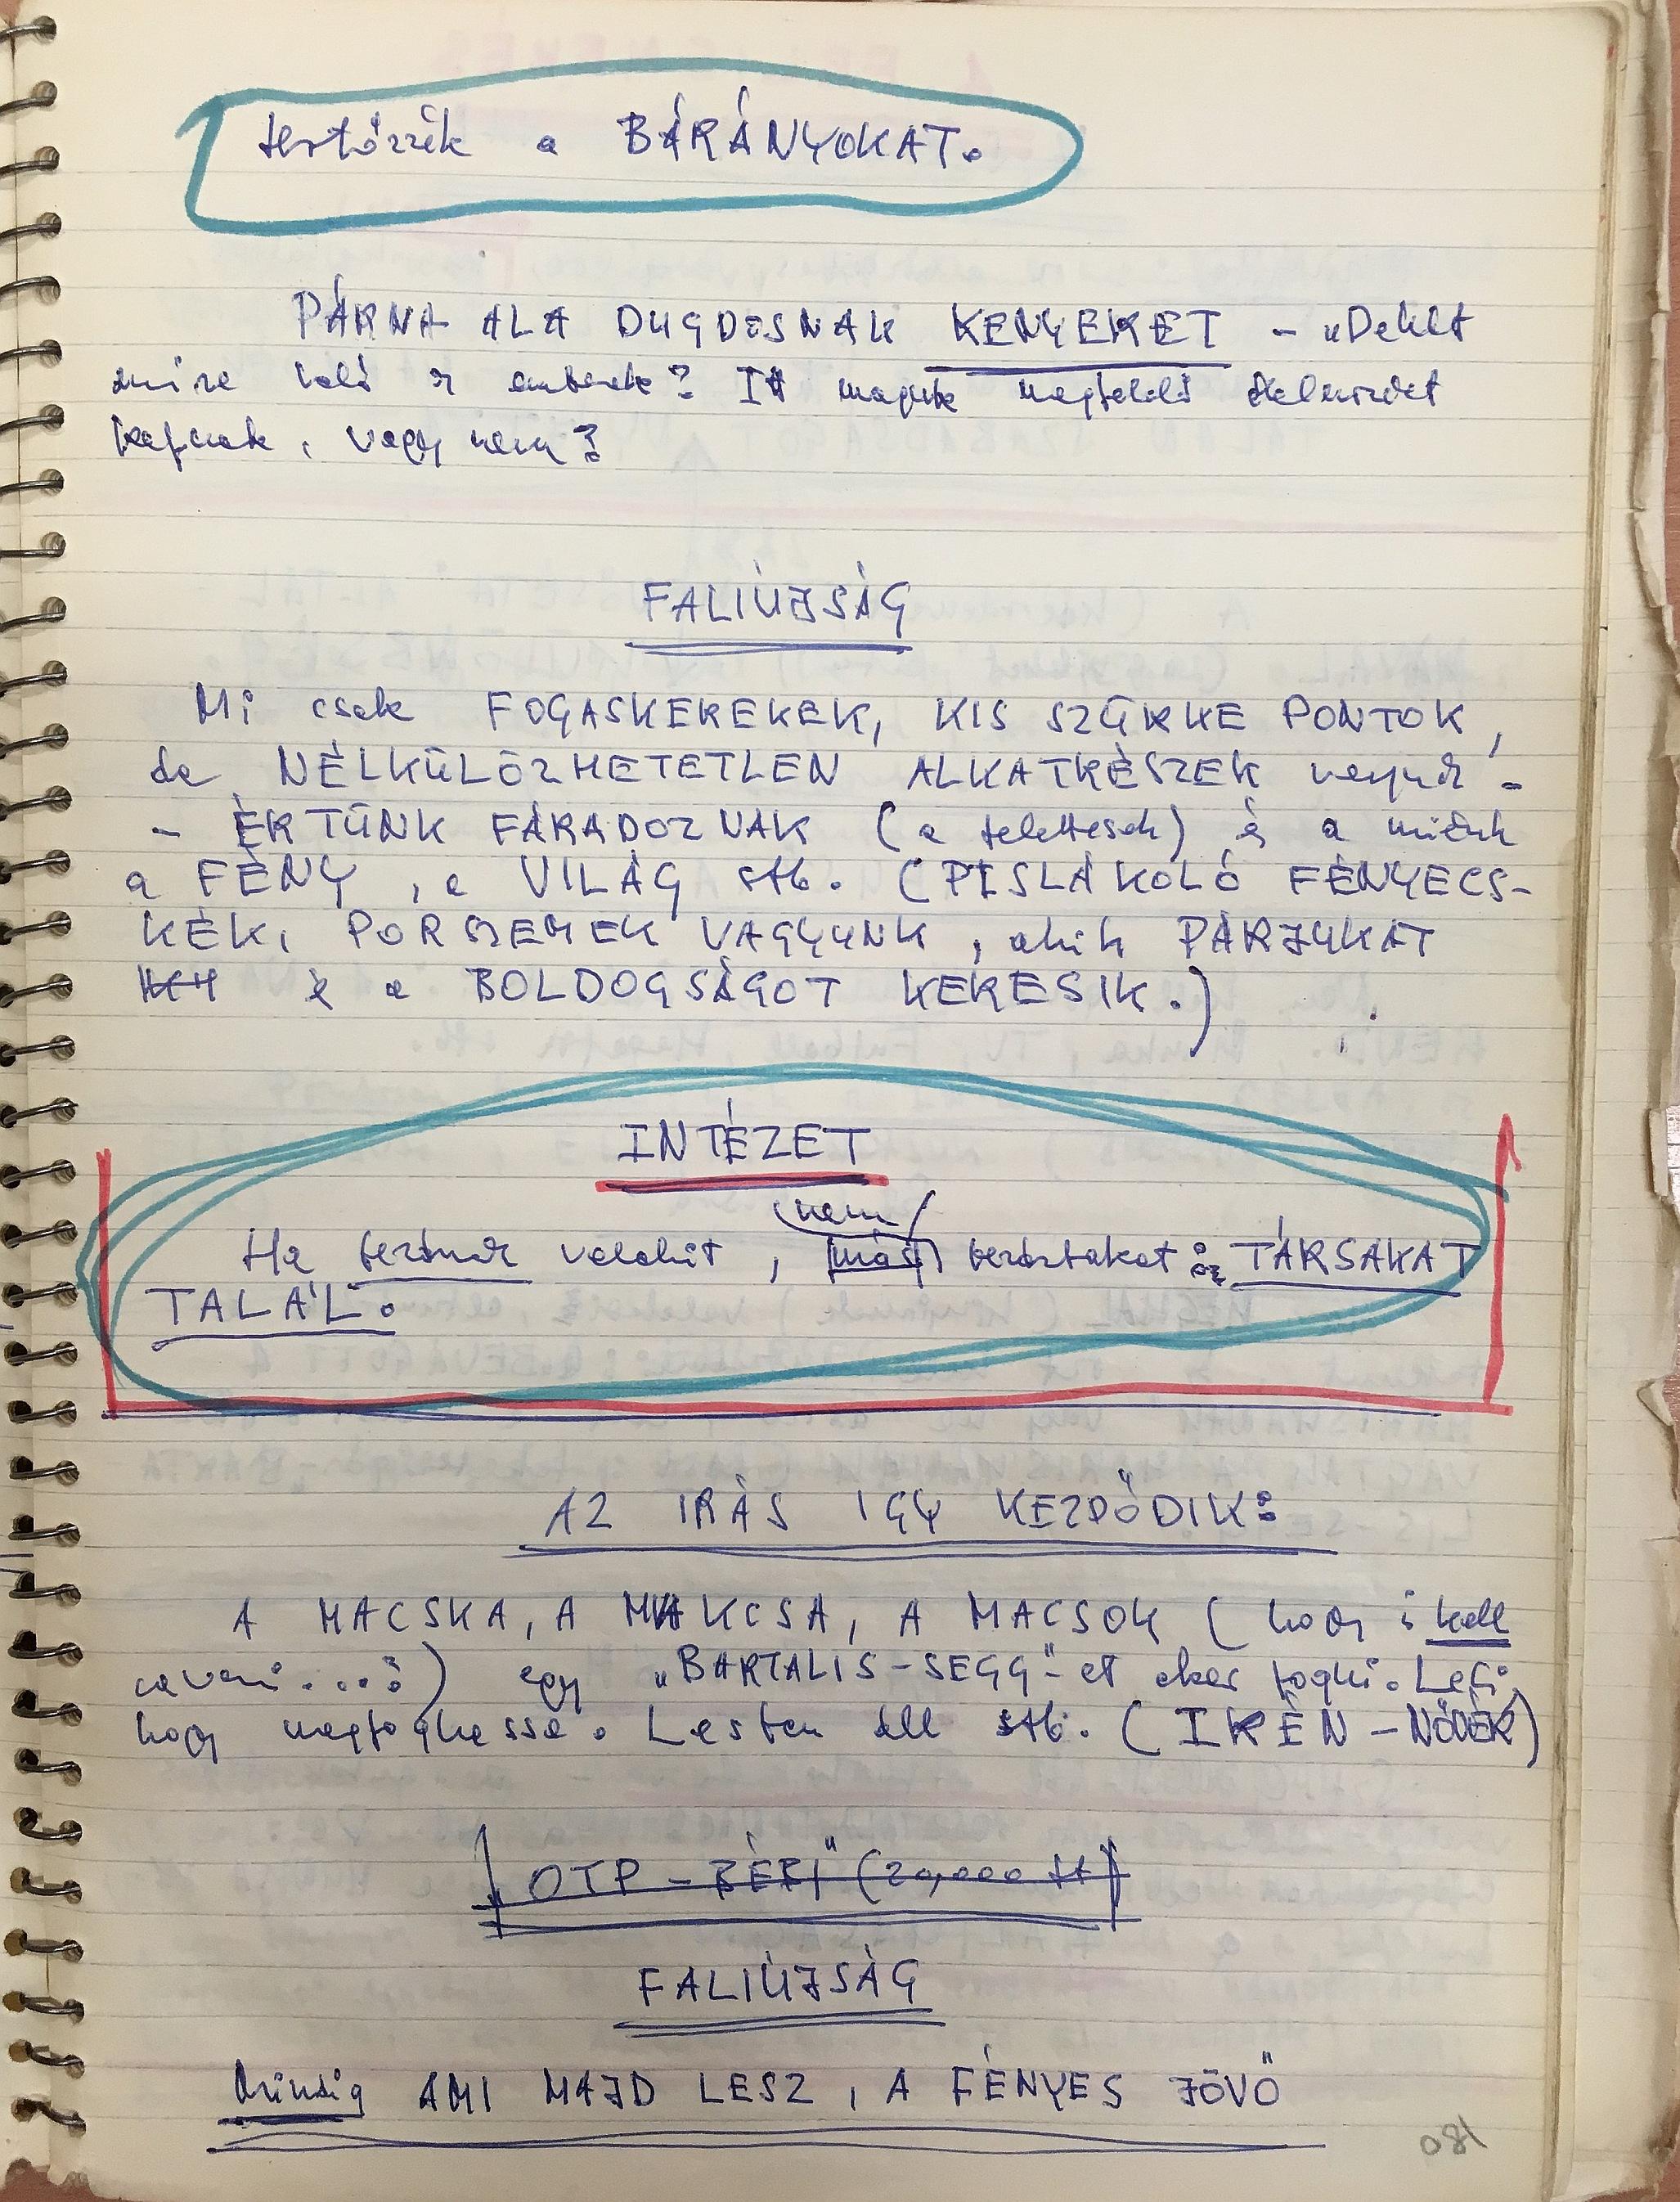 fertőzzék a BÁRÁNYOKAT.
PÁRNA ALÁ DUGDOSNAK KENYERET - „Dehát
mire való ez emberek? Itt maguk megfelelő élelmezést
kapnak, vagy nem?
FALIÚJSÁG
Mi csak FOGASKEREKEK, KIS SZÜRKE PONTOK,
de NÉLKÜLÖZHETETLEN ALKATRÉSZEK vagyunk -
- ÉRTÜNK FÁRADOZNAK (a felettesek) és a miénk
a FÉNY, a VILÁG stb. (PISLÁKOLÓ FÉNYECS-
KÉK, PORSZEMEK VAGYUNK, akik PÁRJUKAT
és a BOLDOGSÁGOT KERESIK.)
INTÉZET
(nem)
Ha bezárnak valakit, más bezártakat: TÁRSAKAT
TALÁL.
AZ IRÁS IGY KEZDŐDIK:
A MACSKA, A MAKCSA, A MACSOK (hogy is kell
írni....?) egy „BARTALIS-SEGG"-et akar fogni. Lesi,
hogy megfoghassa. Lesben áll stb. (IKÉN-NŐVÉR)
OTP-BÉBI" (20,000 Ft)
FALIÚJSÁG
Mindig AMI MAJD LESZ, A FÉNYES JÖVŐ
180